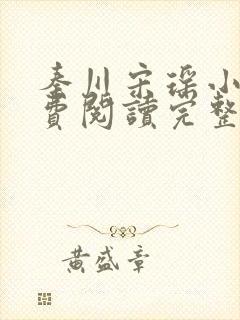 秦川宋瑤小
費閱讀完整
黃盛章